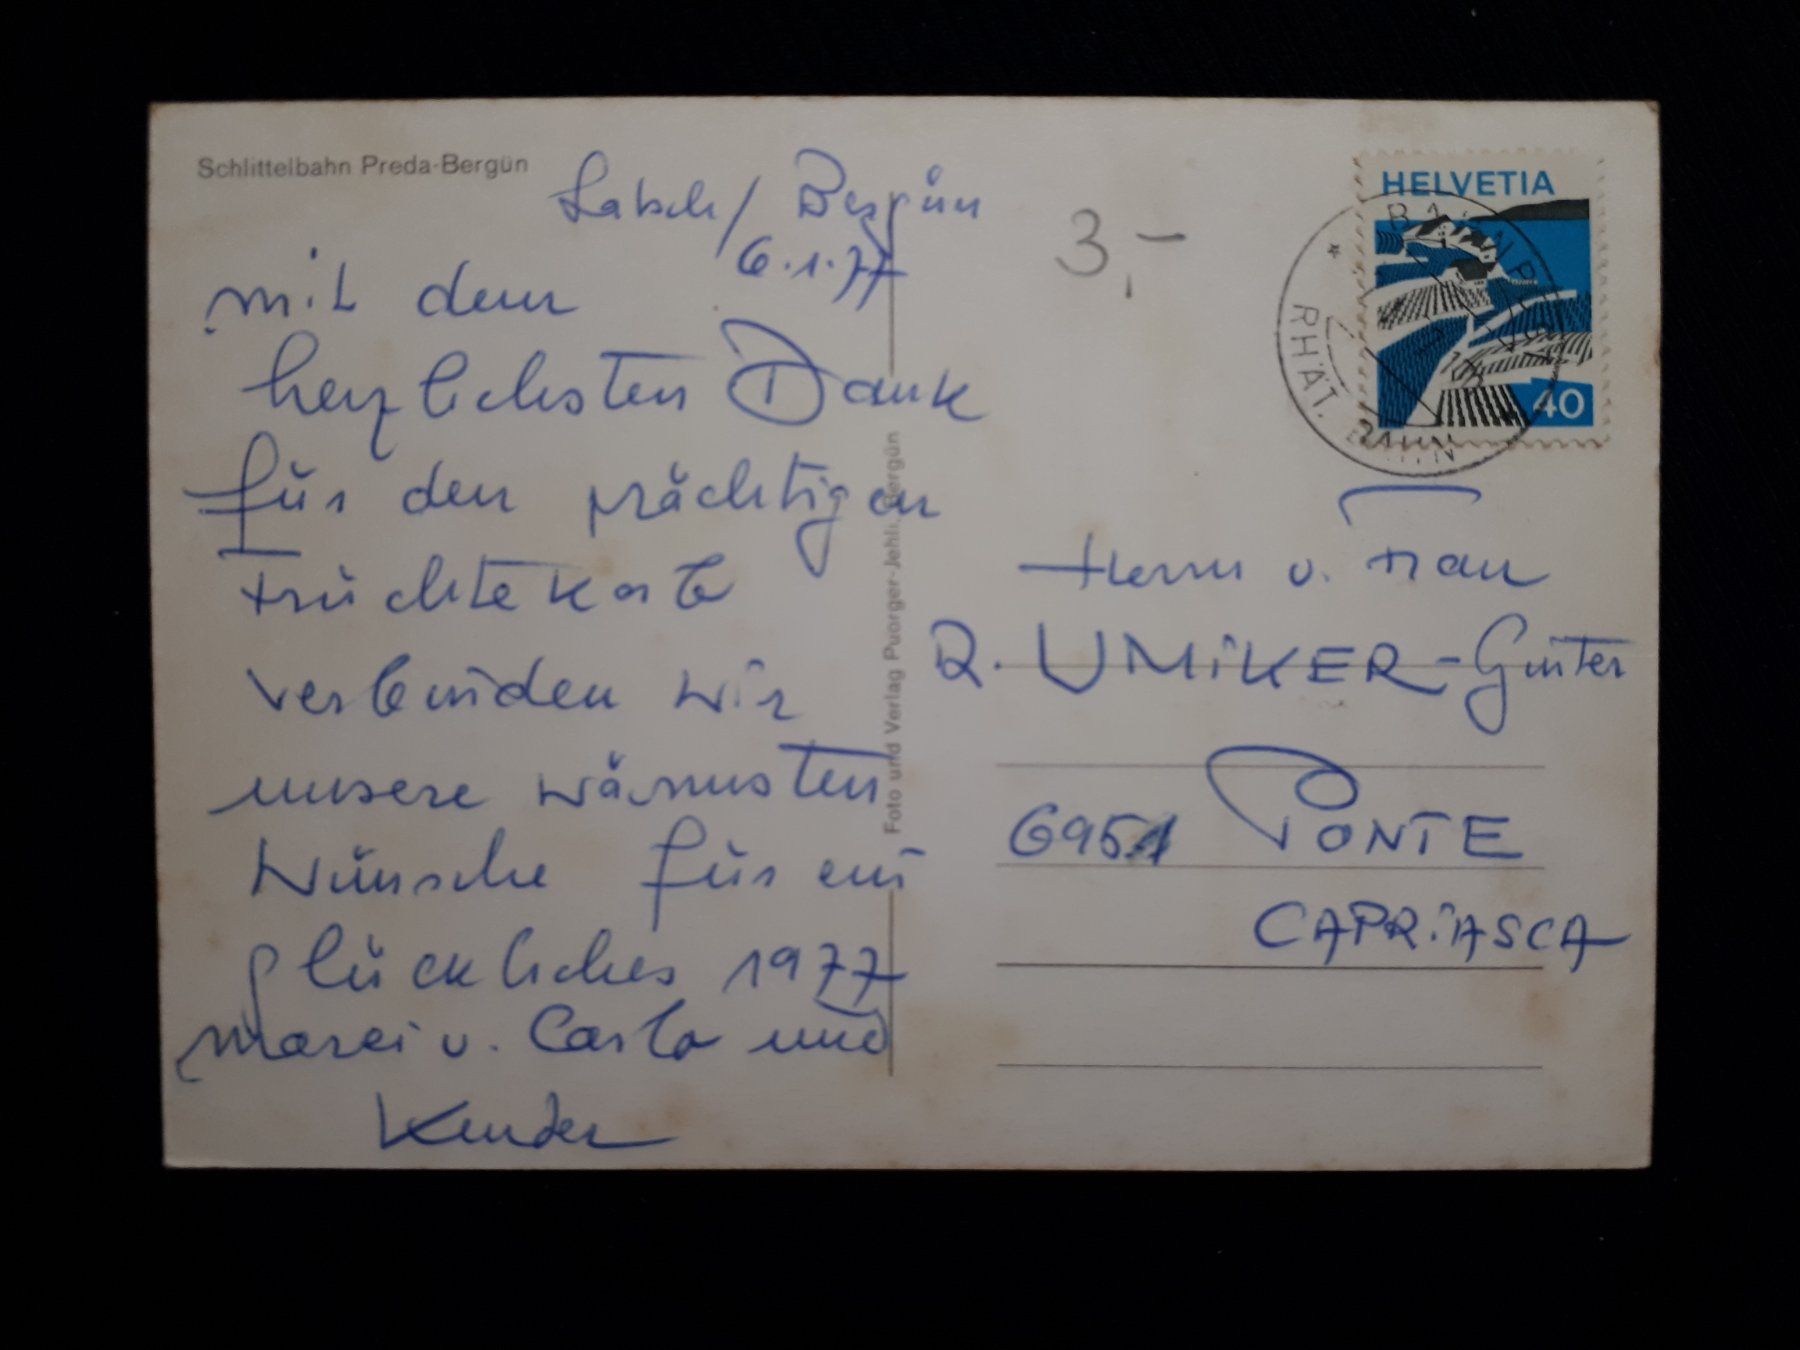 Schlittelbahn Preda-Bergün
Latsch / Bergün
6.1.77
mit dem
herzlichsten Dank
für den prächtigen
Früchtekorb
verbinden wir
unsere wärmsten
Wünsche für ein
glückliches 1977
Marei u. Carlo und
Kinder
Foto und Verlag Puorger-Jehli, Bergün
3,-
HELVETIA
40
RHÄT. BAHN
Herrn u. Frau
R. UMiKER-Ginter
6951 PONTE
CAPRiASCA